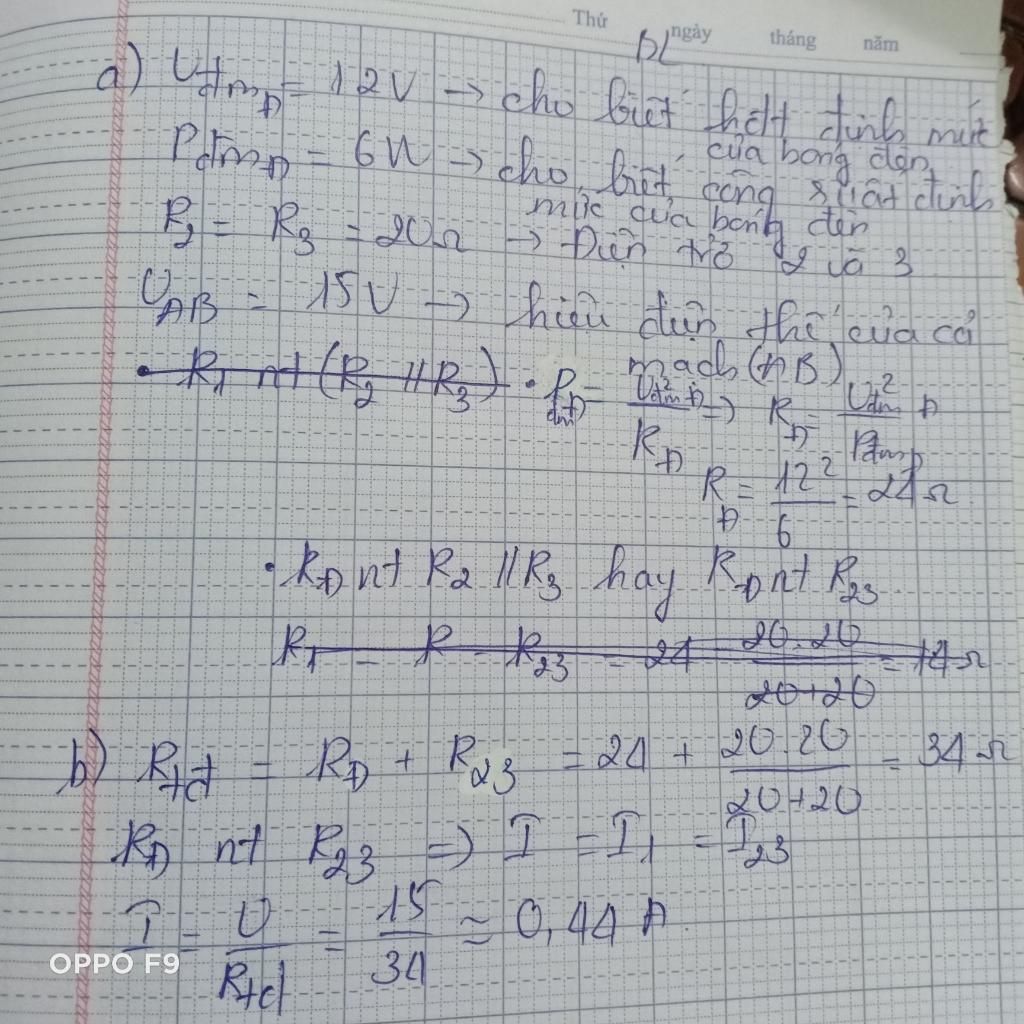 Thứ ngày tháng năm
BL
a) U_đmĐ = 12V → cho biết hđt định mức
của bóng đèn
P_đmĐ = 6W → cho biết công suất định
mức của bóng đèn
R_2 = R_3 = 20Ω → Điện trở 2 và 3
U_AB = 15V → hiệu điện thế của cả
mạch (AB)
• R_1 nt (R_2 // R_3) • P_đmĐ = U²_đmĐ / R_Đ => R_Đ = U²_đmĐ / P_đmĐ
R_Đ = 12² / 6 = 24Ω
• R_Đ nt R_2 // R_3 hay R_Đ nt R_23
R_1 = R - R_23 = 24 - 20.20 / 20+20 = 14Ω
b) R_tđ = R_Đ + R_23 = 24 + 20.20 / 20+20 = 34Ω
R_Đ nt R_23 => I = I_1 = I_23
I = U / R_tđ = 15 / 34 ≈ 0,44A
OPPO F9